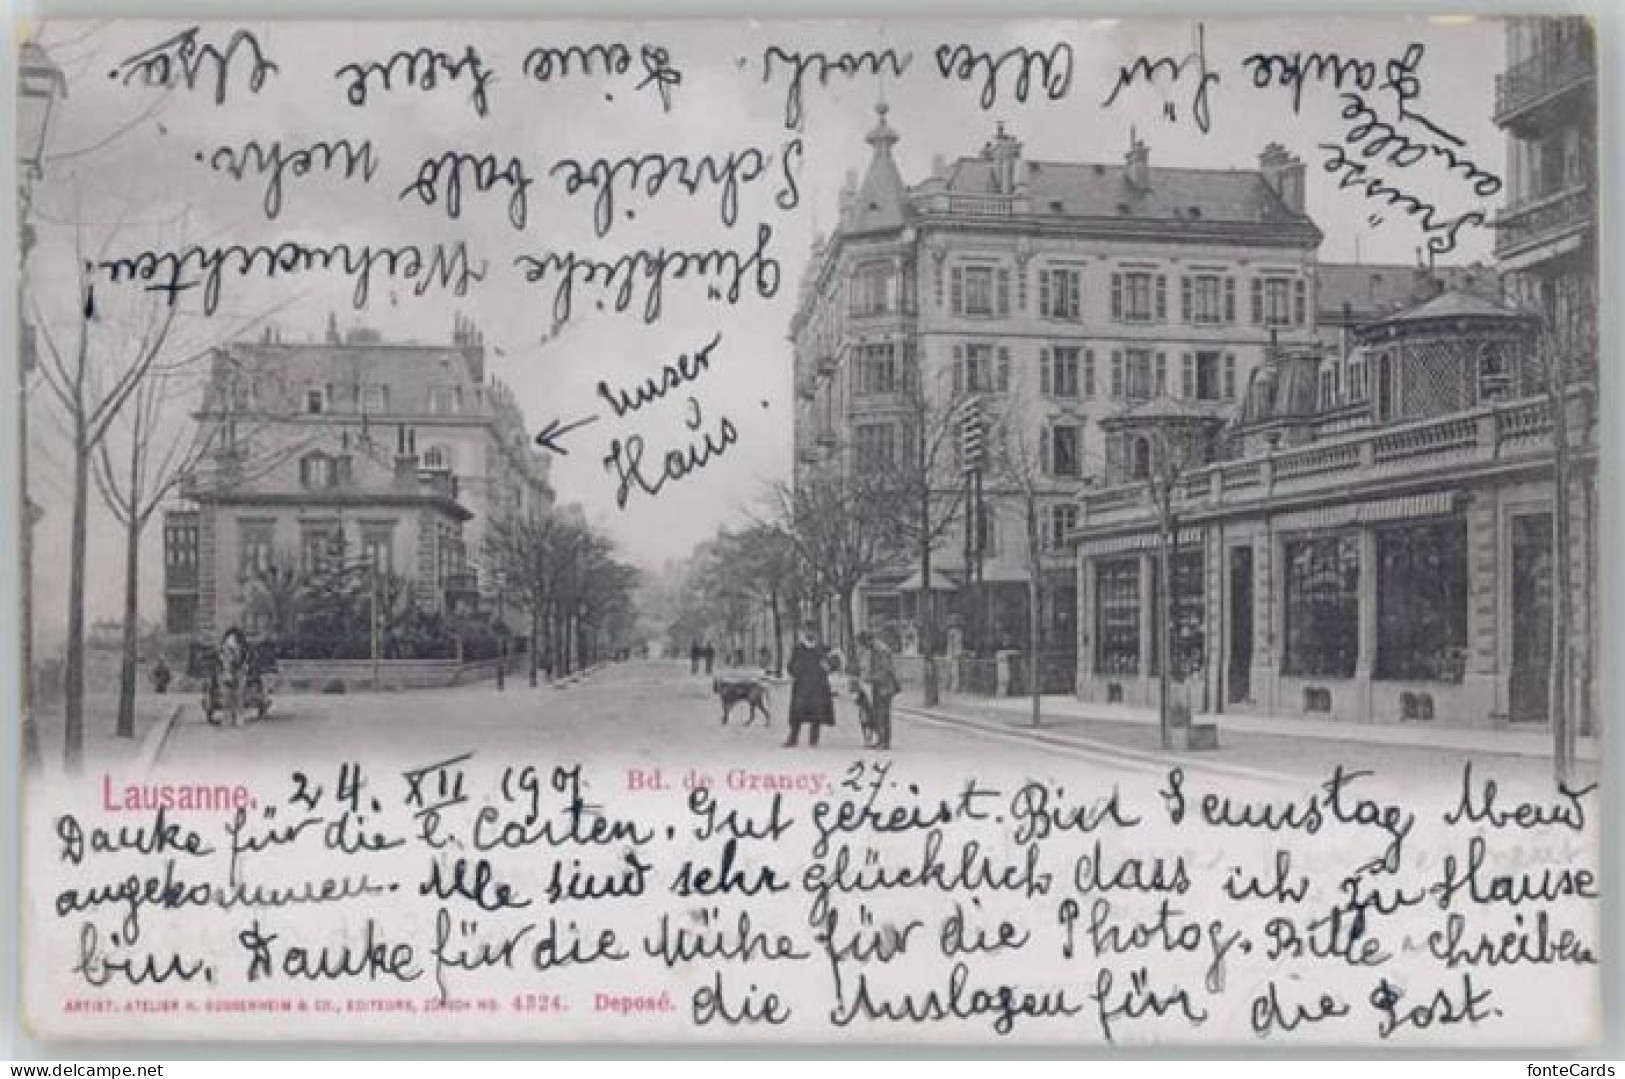 Lausanne. 24. XII 1901. Bd. de Grancy, 27.
Danke für die l. Carten. Gut gereist. Bin Samstag Abend
angekommen. Alle sind sehr glücklich dass ich zu Hause
bin. Danke für die Mühe für die Photog. Bitte schreiben
die Auslagen für die Post.
ARTIST. ATELIER H. GUGGENHEIM & CO., EDITEURS, ZÜRICH NO. 4324. Deposé.
Unser
Haus.
Glückliche Weihnachten!
Schreibe bald mehr.
Danke für Alles noch. Deine treue
Grüsse
an alle
www.delcampe.net
fonteCards